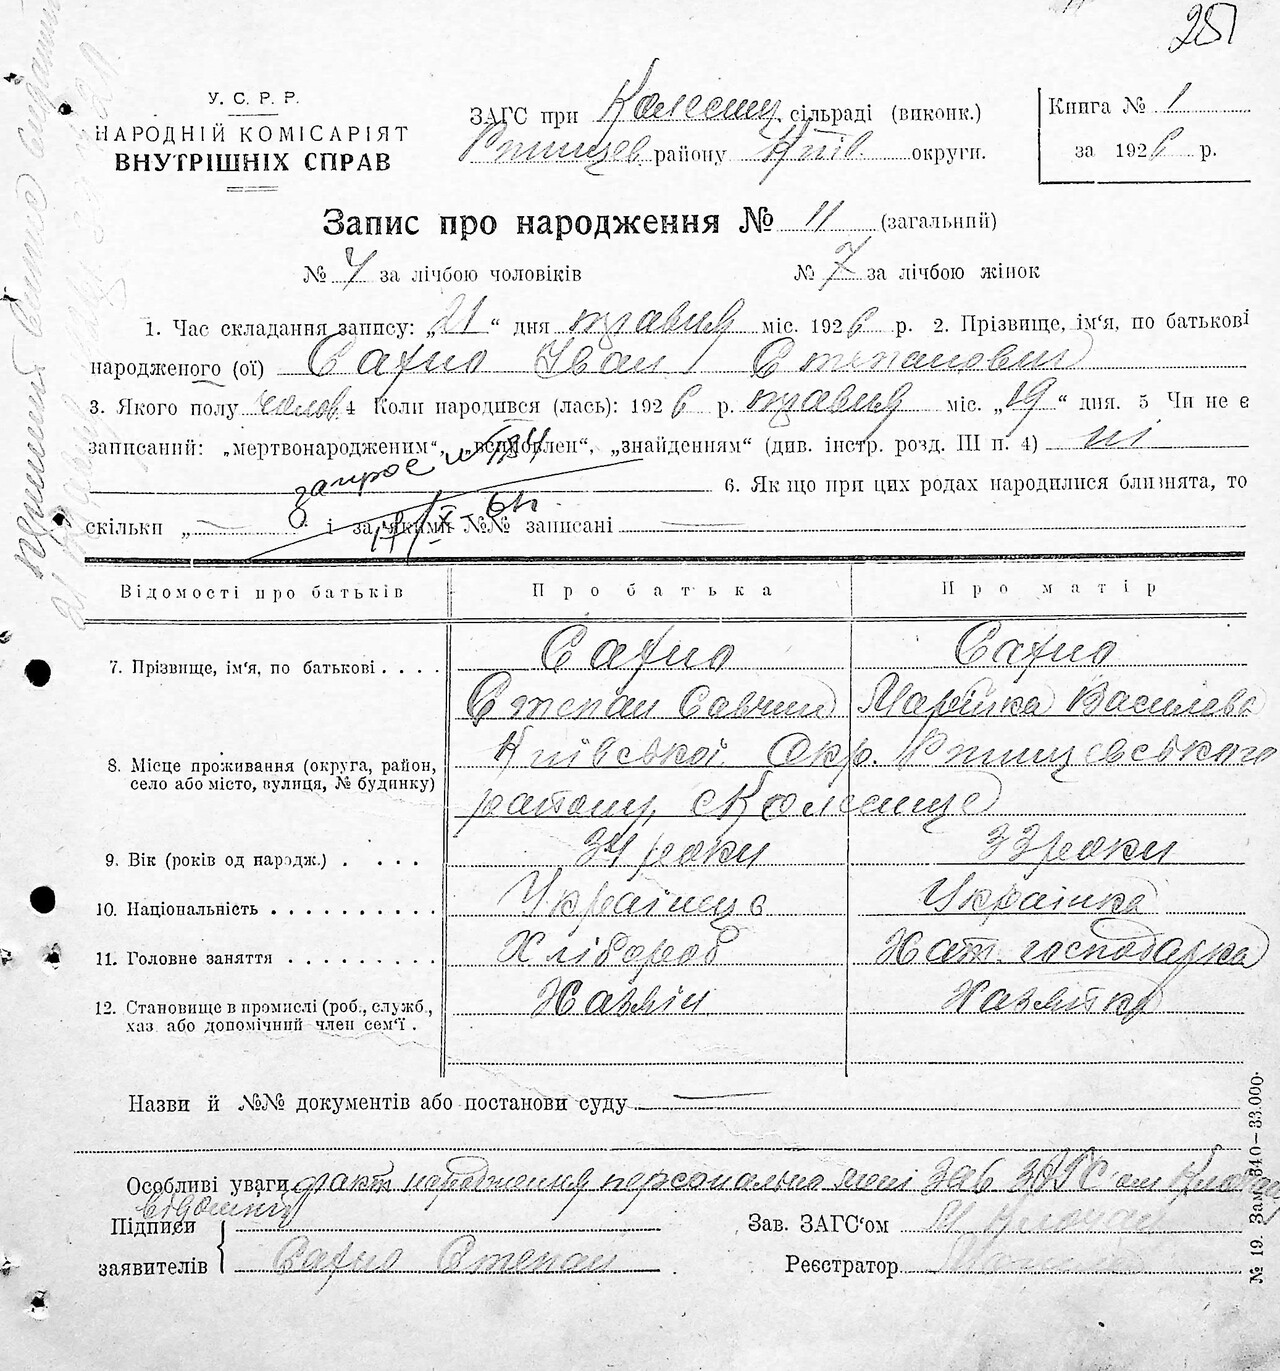 257
У. С. Р. Р.
НАРОДНІЙ КОМІСАРІЯТ
ВНУТРІШНІХ СПРАВ
ЗАГС при Колесищ. сільраді (виконк.)
Ртищев району Київ. округи.
Книга № 1
за 1926 р.
Запис про народження № 11 (загальний)
№ 4 за лічбою чоловіків № 7 за лічбою жінок
1. Час складання запису: „21“ дня травня міс. 1926 р. 2. Прізвище, ім‘я, по батькові
народженого (ої) Сахно Іван Степанович
3. Якого полу чолов 4 Коли народився (лась): 1926 р. травня міс. „19“ дня. 5 Чи не є
записаний: „мертвонародженим“, „всиновлен“, „знайденням“ (див. інстр. розд. III п. 4) ні
запрос №
6. Якщо при цих родах народилися близнята, то
скільки „ “ і за якими №№ записані
Відомості про батьків Про батька Про матір
7. Прізвище, ім‘я, по батькові . . . . Сахно Сахно
Степан Савчин Марійка Василева
8. Місце проживання (округа, район,
село або місто, вулиця, № будинку)
Київської Окр. Ртищевського
району, с Колесище
9. Вік (років од народж.) . . . . 34 роки 33 роки
10. Національність . . . . . . . . . . Українець Українка
11. Головне заняття . . . . . . . . . Хлібороб Хат. господарка
12. Становище в промислі (роб., служб.,
хаз. або допомічний член сем‘ї .
Хазяїн Хазяйка
Назви й №№ документів або постанови суду
Особливі уваги факт народження персонально мені зав ЗАГС'ом
відомий
Підписи
заявителів
Сахно Степан
Зав. ЗАГС‘ом
Реєстратор
№ 19. Зам. 340—33.000.